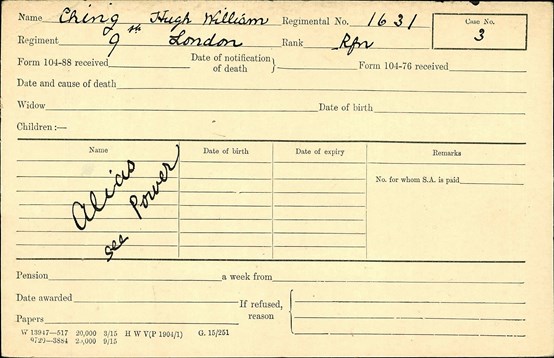 Name Ching Hugh William Regimental No. 1631 Case No. 3
Regiment 9th London Rank Rfn
Form 104-88 received Date of notification of death } Form 104-76 received
Date and cause of death
Widow Date of birth
Children:—
Name Date of birth Date of expiry Remarks
No. for whom S.A. is paid
Alias
see Power
Pension a week from
Date awarded If refused, reason {
Papers
W 13947—517 20,000 3/15 H W V(P 1904/1) G. 15/251
9/15